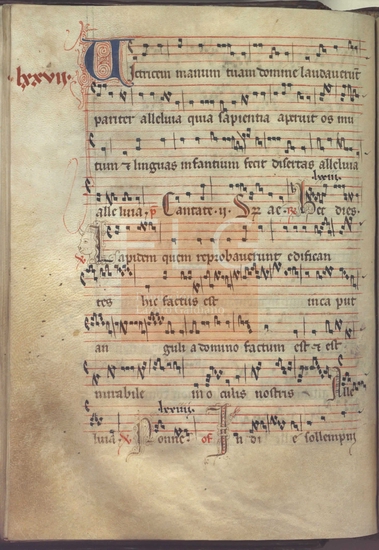 lxxvii.
Victricem manum tuam domine laudauerut
pariter alleluia quia sapientia aperuit os mu
tum & linguas infantium fecit disertas alleluia
lxiii.
alleluia. p̄s Cantate .ij. Sp̄ ae. Hec dies.
Lapidem quem reprobauerunt edifican
tes hic factus est in ca put
an guli a domino factum est & est
mirabile in o culis nostris Alle
lxxiiii.
luia. Nonne of In di e sollempni